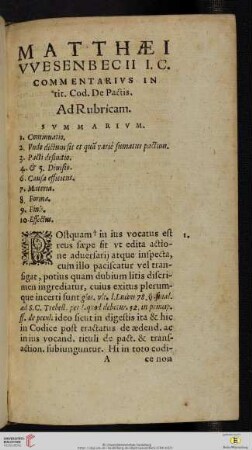 MATTHÆI
VVESENBECII I.C.
COMMENTARIVS IN
tit. Cod. De Pactis.
Ad Rubricam.
SVMMARIVM.
1. Continuatio.
2. Vnde dictum sit et quã variè sumatur pactum.
3. Pacti definitio.
4. & 5. Diuisio.
6. Causa efficiens.
7. Materia.
8. Forma.
9. Finis.
10. Effectus.
POstquam in ius vocatus est 1.
reus sæpe fit vt edita actio-
ne aduersarij atque inspecta,
cum illo paciscatur vel tran-
sigat, potius quam dubium litis discri-
men ingrediatur, cuius exitus plerum-
que incerti sunt
ideo sicut in digestis ita & hic
in Codice post tractatus de ædend. ac
in ius vocand. tituli de pact. & trans-
action. subiunguntur. Hi in toto codi-
A ce non